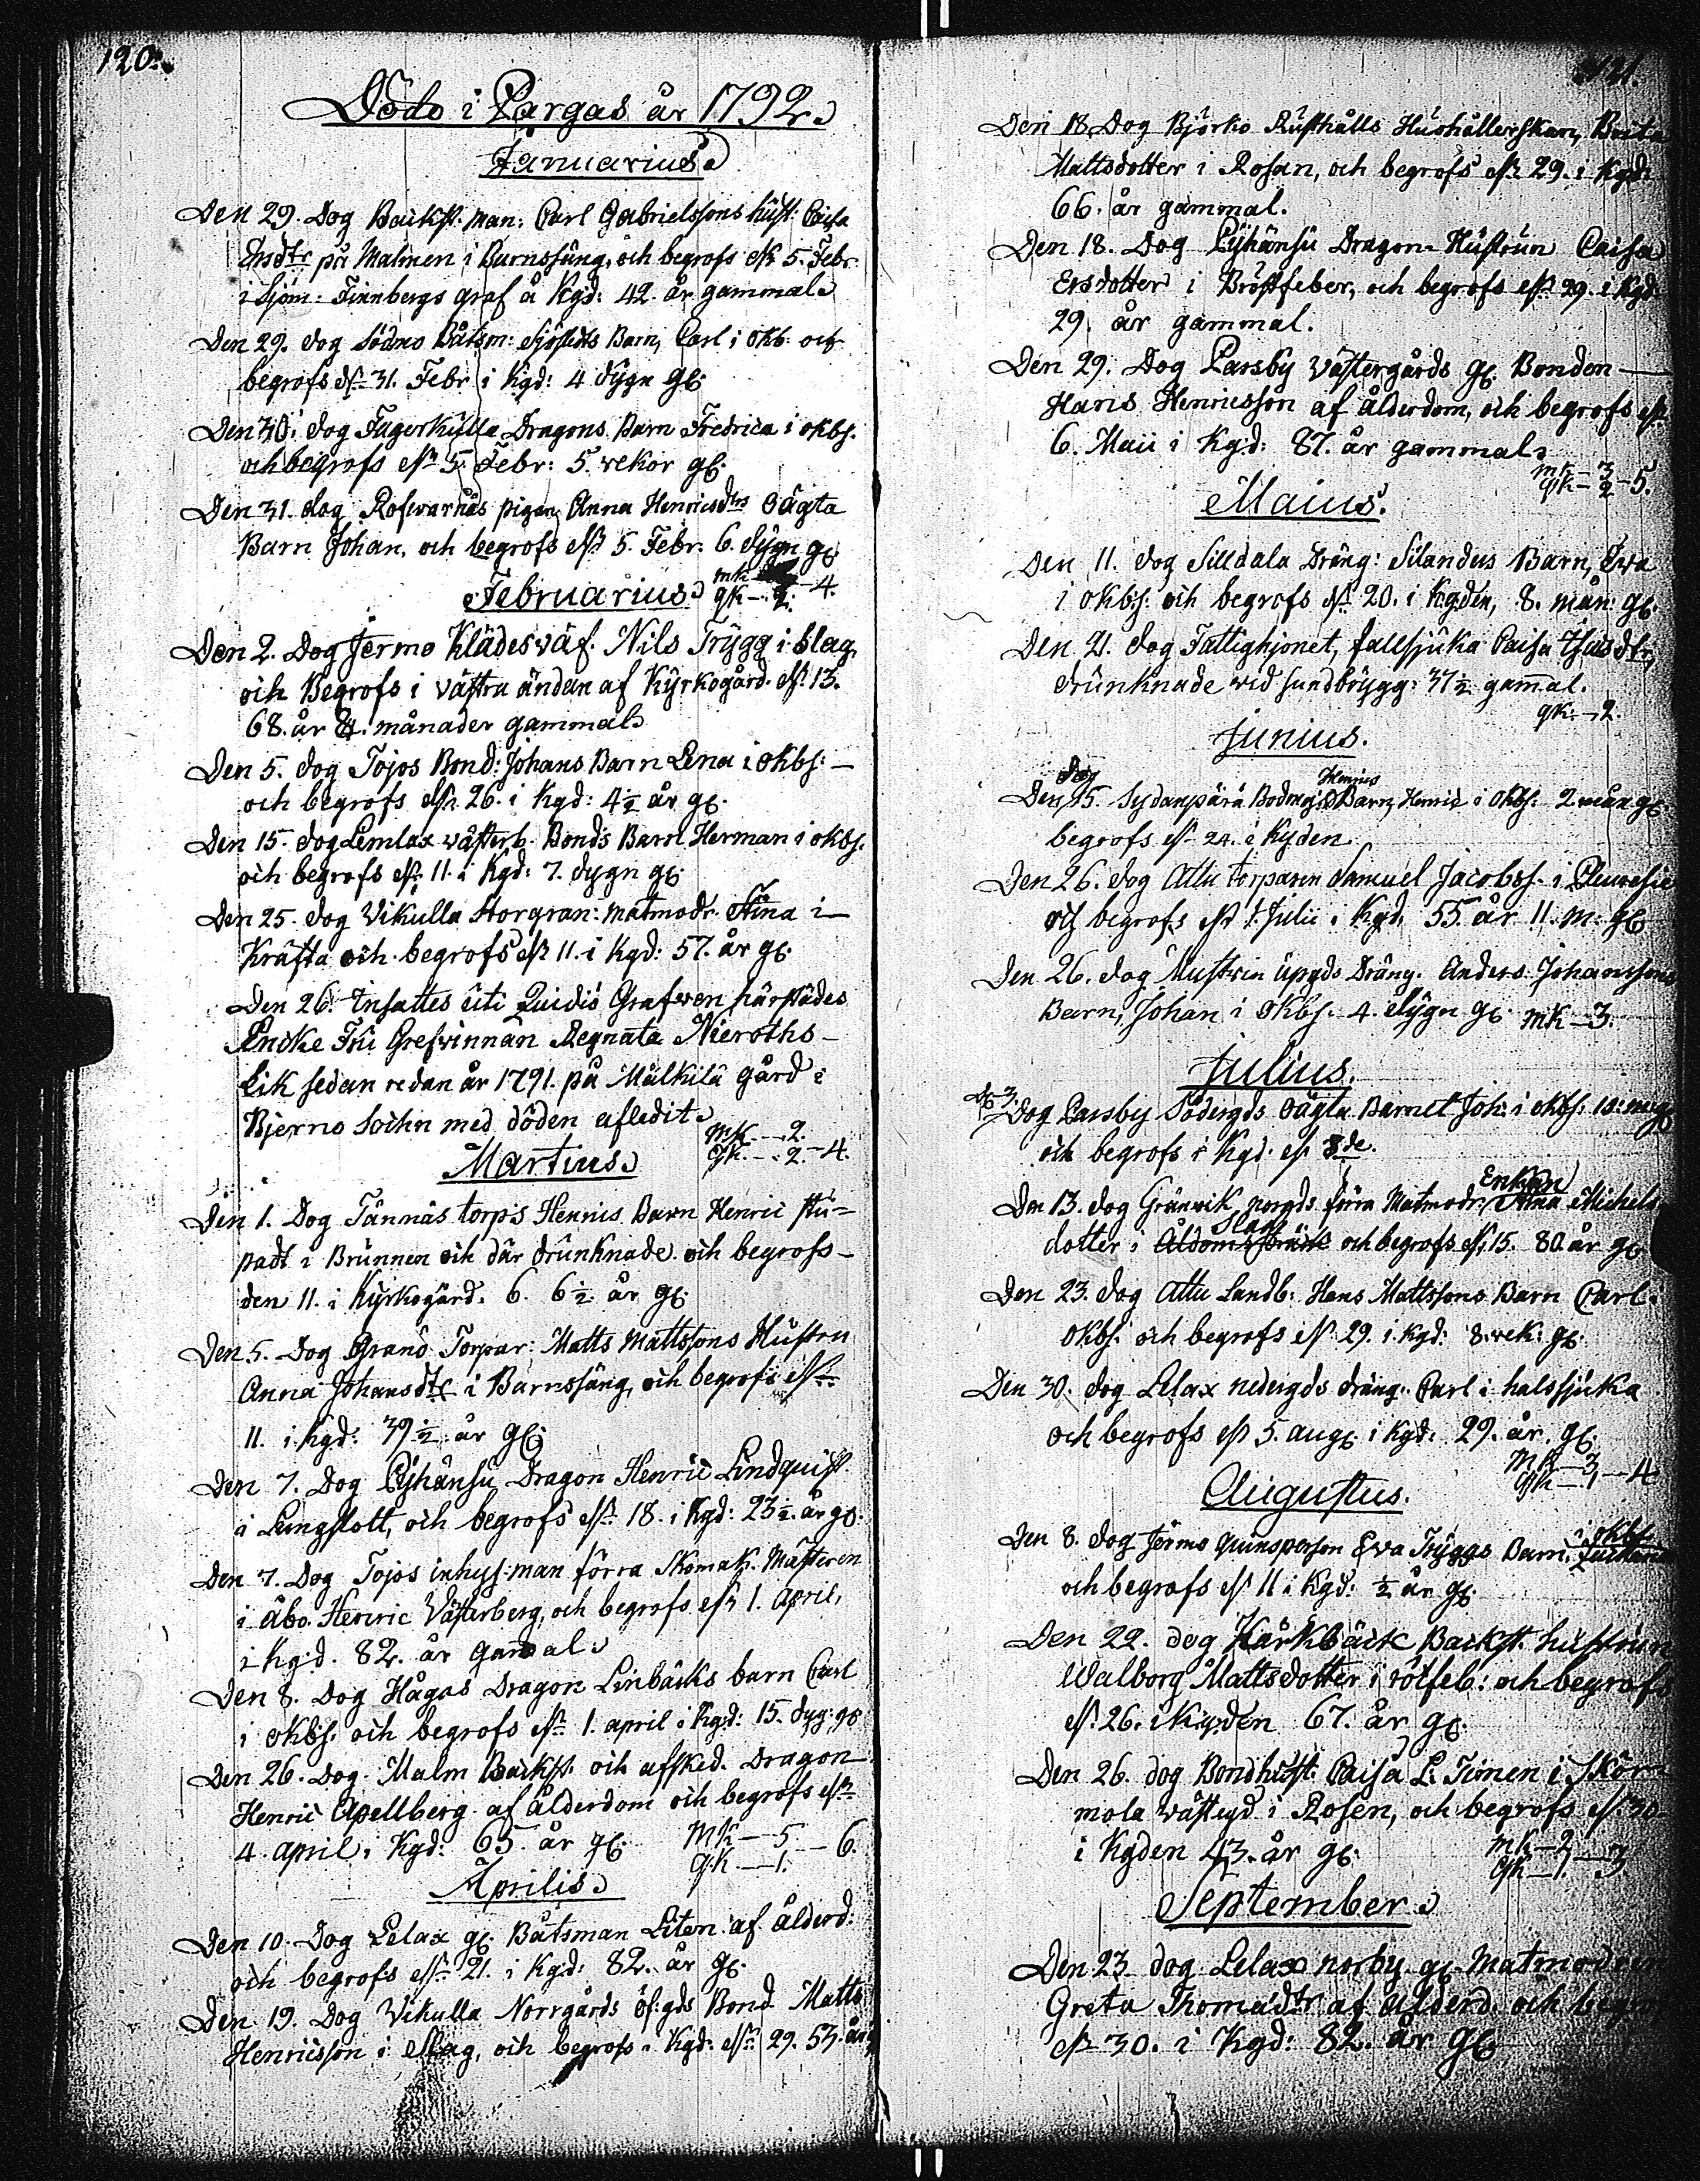 120.
Döde i Pargas år 1792.
Januarius
Den 29. Dog Backst. man: Carl Gabrielssons hust: Caisa
Ersdtr på Malmen i Barnssäng, och begrofs ds 5. Febr.
i Sjöm: Finnbergs graf å Kgd: 42. år gammal
Den 29. dog Södmo Båtsm: Sjöstedts Barn, Carl i okb. och
begrofs ds 31. Febr i Kgd: 4 dygn gl:
Den 30. dog Fagerkulla Dragons Barn Fredrica i okbs.
och begrofs ds 5. Febr: 5. vekor gl:
Den 31. dog Rofvarnäs pigan Anna Henricsdtrs oägta
Barn Johan, och begrofs ds 5. Febr. 6. dygn gl
Februarius
mk
qk - 2. - 4.
Den 2. Dog Jermo Klädesväf. Nils Trygg i slag,
och Begrofs i västra ändan af Kyrkogård. ds 13.
68. år 4. månader gammal
Den 5. dog Tojos Bond: Johans Barn Lena i okbs: —
och begrofs ds 26. i Kgd: 4½ år gl.
Den 15. dog Lemlax västerb. Bonds Barn Herman i okbs.
och begrofs ds 11. i Kgd: 7. dygn gl:
Den 25. dog Vikulla Storgran: matmodr. Stina i
Kräfta och begrofs ds 11. i Kgd: 57. år gl:
Den 26. Insattes uti Quidis Grafwen härstädes
Encke Fru Grefvinnan Regnata Nieroths
Lik sedan redan år 1791. på Målkilä gård i
Bjerno sochn med döden afledit
Martius
mk - 2.
qk. - 2. - 4.
Den 1. Dog Tännäs torps Hennis Barn Henric stu-
padt i Brunnen och där drunknade och begrofs
den 11. i Kyrkogård. 6. 6½ år gl:
Den 5. Dog Granö Torpar: Matts Mattssons Hustru
Anna Johansdtr i Barnssäng, och begrofs ds
11. i Kgd: 39½ år gl:
Den 7. Dog Pyhänsu Dragon Henric Lindquist
i Lungslott, och begrofs ds 18. i Kgd: 23½. år gl:
Den 7. Dog Tojos inhys-man förra Skomak. Mästeren
i Åbo Henric Västerberg, och begrofs ds 1. April,
i Kgd. 82. år gammal
Den 8. Dog Hågas Dragon Linbäcks barn Carl
i okbs. och begrofs ds 1. april i Kgd: 15. dyg: gl
Den 26. Dog Malm Backst: och afsked. Dragon
Henric Apellberg af ålderdom och begrofs ds
4. april i Kgd: 65. år gl:
MK - 5
GK - 1. - 6.
Aprilis
Den 10. Dog Lelax gl. Båtsman Liten af ålderd:
och begrofs ds 21. i Kgd: 82. år gl.
Den 19. Dog Vikulla Norrgårds öf:gds Bond Matts
Henricsson i slag, och begrofs i Kgd: ds 29. 53. år
121.
Den 18. Dog Björko Rusthålls Hushållerskan, Brita
Mattsdotter i Rosan, och begrofs ds 29. i Kgd:
66. år gammal.
Den 18. Dog Pyhänsu Dragon-Hustrun Caisa
Ersdotter i Bröstfeber, och begrofs ds 29. i Kgd:
29. år gammal.
Den 29. Dog Parsby Västergårds gl. Bonden —
Hans Henricsson af ålderdom, och begrofs ds
6. Maii i Kgd: 87. år gammal
mk - 3
qk - 2 - 5.
Maius.
Den 11. dog Silldala Dräng: Silandus Barn, Ewa
i okbs: och begrofs ds 20. i Kgden, 8. mån: gl.
Den 21. dog Fattighjonet, fallsjuka Caisa dtr,
drunknade vid sundbrygg: 37½ gamal.
qk - 2.
Junius.
dog
Den 15. Sydanpärä Barn, Henric i okbs. 2 mån gl.
begrofs ds 24. i Kyden
Den 26. dog Attu torparen Samuel Jacobss. i Pleuresie
och begrofs ds 1. Julii i Kgd. 55. år 11. m. gl
Den 26. dog Mustvin üpgds Dräng. Anders Johanssons
Barn, Johan i okbs. 4. dygn gl. mk - 3.
Julius.
d. 3.
Dog Parsby Södergds oägta Barnet Joh: i okbs:
och begrofs i Kgd. ds 8de.
Enkan
Den 13. dog Gränvik norgds förra Matmodr. Michels
Slag
dotter i Ålddoms och begrofs ds 15. 80. år gl
Den 23. dog Attu Landb: Hans Mattssons Barn Carl.
okbs. och begrofs ds 29. i. kgd: 8. vek: gl.
Den 30. dog Lelax nedergds dräng. Carl i halssjuka
och begrofs ds 5. aug. i kgd: 29. år. gl.
MK - 3
qk - 1 - 4
Augustus.
Den 8. dog Jermo quinsperson Eva Tryggs Barn, i okbs.
och begrofs ds 11 i Kgd: ½ år gl.
Den 22. dog Harkbäck Backst. hustrun
Walborg Mattsdotter i rötfeb: och begrofs
ds 26. i Kyden 67. år gl.
Den 26. dog Bondhust: Caisa L: Simen i Skär
mola västgd i Rosen, och begrofs ds 30
i Kgden 43. år gl.
mk - 2
qk - 1. - 3
September
Den 23. dog Lelax norby gl. Matmodren
Greta Thomasdtr af ålderd. och begr
ds 30. i Kgd: 82. år gl